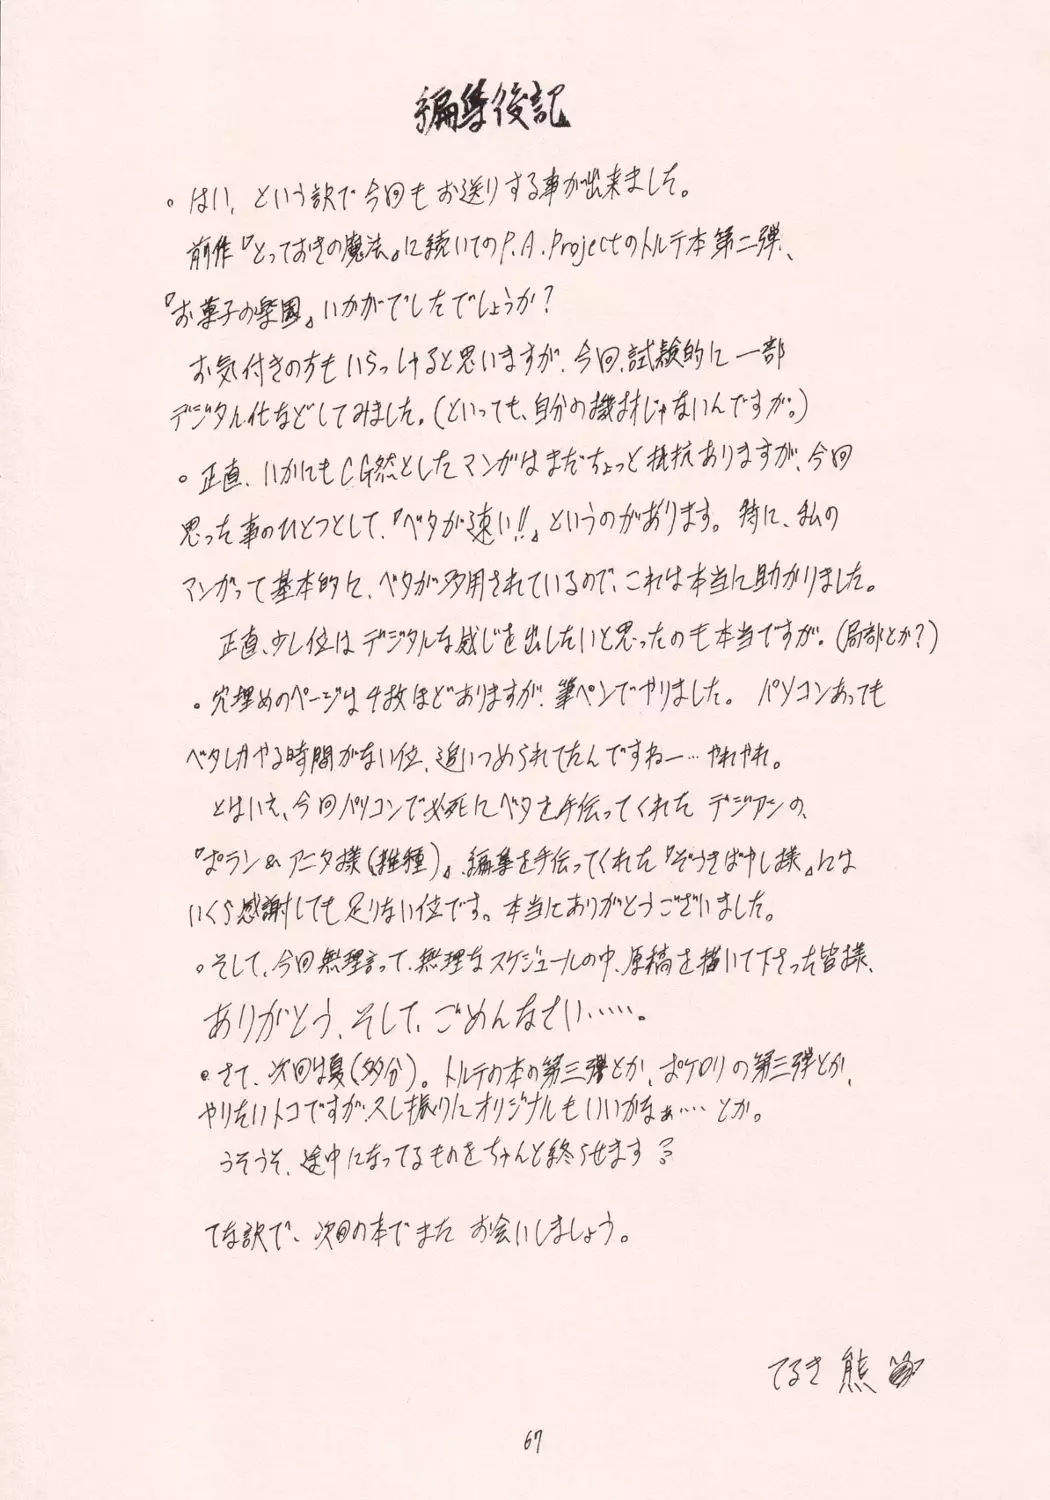 編集後記
。はい、という訳で今回もお送りする事が出来ました。
前作『とっておきの魔法』に続いてのP.A.Projectのトルテ本第二弾、
『お菓子の楽園』いかがでしたでしょうか?
お気付きの方もいらっしゃると思いますが、今回、試験的に一部
デジタル化などしてみました。(といっても、自分の機材じゃないんですが。)
。正直、いかにもCG然としたマンガはまだちょっと抵抗ありますが、今回
思った事のひとつとして、『ベタが速い!!』というのがあります。特に、私の
マンガって基本的に、ベタが多用されているので、これは本当に助かりました。
正直、少し位はデジタルな感じを出したいと思ったのも本当ですが。(局部とか?)
。穴埋めのページは4枚ほどありますが、筆ペンでやりました。パソコンあっても
ベタしかやる時間がない位、追いつめられてたんですねー…やれやれ。
とはいえ、今回パソコンで必死にベタを手伝ってくれたデジアシの、
『ポラン&アニタ様(雑種)』、編集を手伝ってくれた『ぞうきばやし様』には
いくら感謝しても足りない位です。本当にありがとうございました。
。そして、今回無理言って、無理なスケジュールの中、原稿を描いて下さった皆様、
ありがとう、そして、ごめんなさい……。
。さて、次回は夏(多分)。トルテの本の第三弾とか、ポケロリの第三弾とか、
やりたいトコですが、久し振りにオリジナルもいいかなぁ…とか。
うそうそ、途中になってるものをちゃんと終らせます?
てな訳で、次回の本でまたお会いしましょう。
てるき熊
67